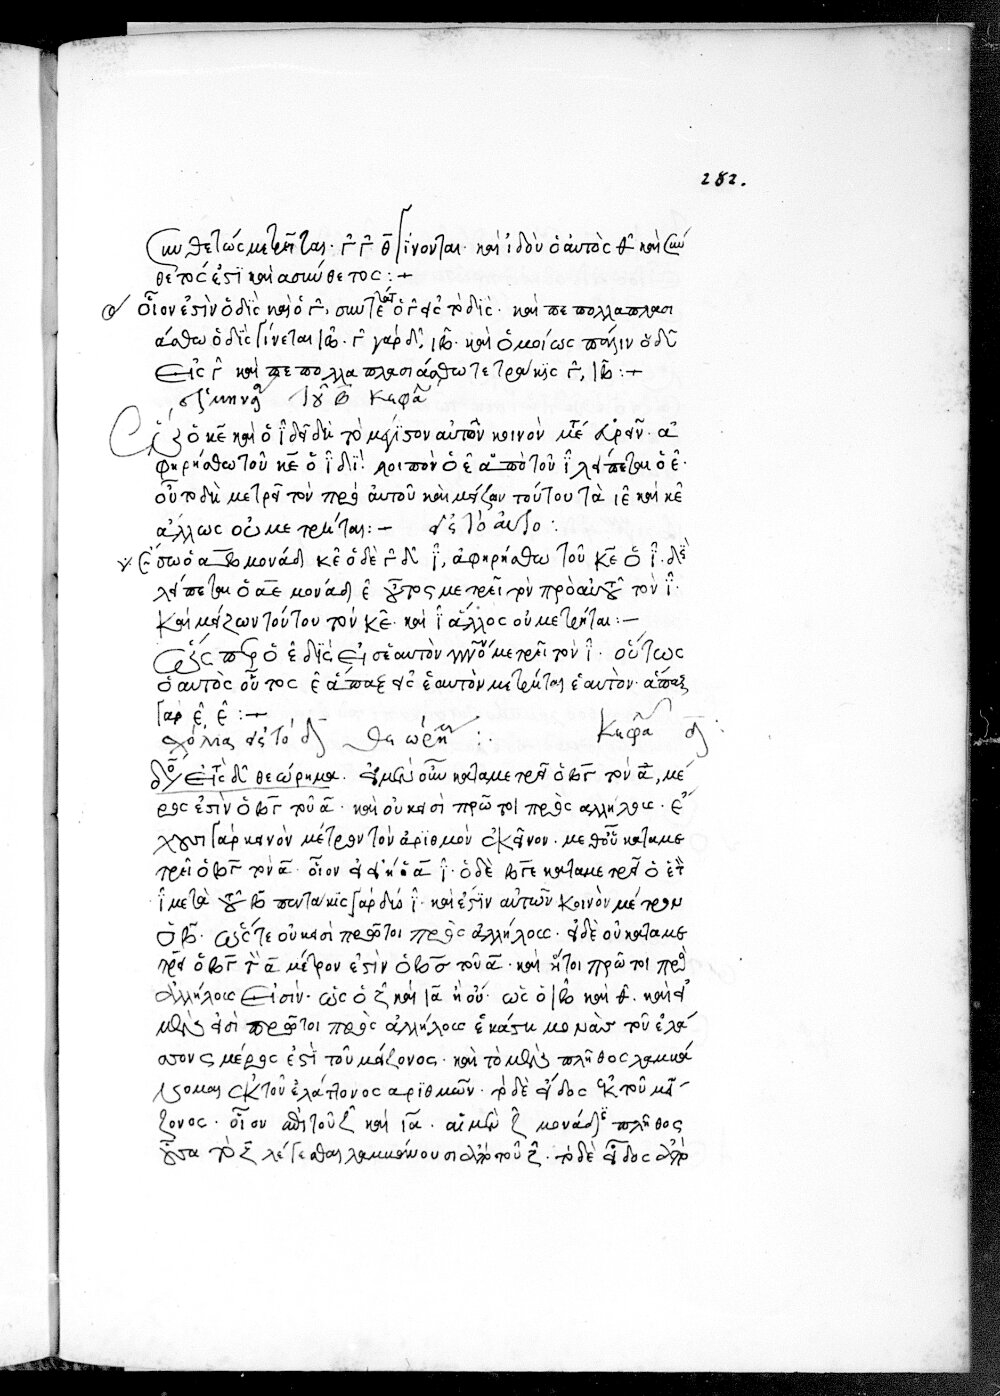 282.
συνθετῶς μετρεῖται. γ̄ γ̄ θ̄ γίνονται. καὶ ἰδοὺ ὁ αὐτὸς θ̄ καὶ συν
θετός ἐστι καὶ ἀσύνθετος :+
οἷον ἐστὶν ὁ δὶς καὶ ὁ γ̄, ὁ γ̄ εἰς τὸ δὶς. καὶ πεπολλαπλασι
άσθω ὁ δὶς γίνεται ιβ. γ̄ γὰρ δ̄, ιβ. καὶ ὁμοίως πάλιν ὁ δ̄
εἰς γ̄ καὶ πεπολλαπλασιάσθω τετράκις γ̄, ιβ :+
τοῦ β̄ κεφα
ὁ κε καὶ ὁ ῑ δεῖ δὴ τὸ μεῖζον αὐτῶν κοινὸν μέ εὑρεῖν. ἀ
φῃρήσθω τοῦ κε ὁ ῑ δίς. λοιπὸν ὁ ε̄ ἀπὸ τοῦ ῑ λείπεται ὁ ε̄.
οὗτος δὴ μετρεῖ τὸν πρὸ αὐτοῦ καὶ μείζων τούτου τὰ ιε καὶ κε
ἄλλως οὐ μετρεῖται :– εἰς τὸ αὐτὸ :
ἔστω ὁ αβ μονάδ κε ὁ δὲ γδ ῑ, ἀφῃρήσθω τοῦ κε ὁ ῑ. δὶς
λείπεται ὁ αε μονάδ ε̄ οὗτος μετρεῖ τὸν πρὸ αὐτοῦ τὸν ῑ.
καὶ μείζων τούτου τὸν κε. καὶ ῑ ἄλλος οὐ μετρεῖται :–
ὥσπερ ὁ ε̄ δὶς εἰς ἑαυτὸν μετρεῖ τὸν ῑ. οὕτως
ὁ αὐτὸς οὗτος ε̄ ἅπαξ εἰς ἑαυτὸν μετρεῖται ἑαυτὸν. ἅπαξ
γὰρ ε̄, ε̄ :+
σχόλια εἰς τὸ δ θεώρημα :. κεφα δ :
εἰς τὸ δ θεώρημα. εἰ μὲν οὖν καταμετρεῖ ὁ βγ τὸν ᾱ, μέ
ρος ἐστὶν ὁ βγ τοῦ ᾱ. καὶ οὐκ εἰσὶ πρῶτοι πρὸς ἀλλήλους. ἔ
χουσι γὰρ κοινὸν μέτρον τὸν ἀριθμὸν ἐκεῖνον. μεθ' οὗ καταμε
τρεῖ ὁ βγ τὸν ᾱ. οἷον εἰ εἴη ὁ ᾱ ῑ. ὁ δὲ βγ ε̄ καταμετρεῖ ὁ ε̄ τὸν
ῑ μετὰ τοῦ β̄ πεντάκις γὰρ δύο ῑ. καὶ ἔστιν αὐτῶν κοινὸν μέτρον
ὁ β̄. ὥστε οὐκ εἰσὶ πρῶτοι πρὸς ἀλλήλους. εἰ δὲ οὐ καταμε
τρεῖ ὁ βγ τὸν ᾱ μέτρον ἐστὶν ὁ βγ τοῦ ᾱ. καὶ ἤτοι πρῶτοι πρὸς
ἀλλήλους εἰσίν. ὡς ὁ ζ καὶ ια ἢ οὔ. ὡς ὁ ιβ καὶ θ̄. καὶ εἰ
μὲν εἰσὶ πρῶτοι πρὸς ἀλλήλους ἑκάστη μονὰς τοῦ ἐλά
σσονος μέρος ἐστὶ τοῦ μείζονος. καὶ τὸ μὲν πλῆθος λαμβά
νομεν ἐκ τοῦ ἐλάττονος ἀριθμῶν. τὸ δὲ εἶδος ἐκ τοῦ μεί
ζονος. οἷον ἐπὶ τοῦ ζ καὶ ια. αἱ μὲν ζ μονάδες πλῆθος
οὖσαι τὸ ζ λέγεσθαι λαμβάνουσι ἀπὸ τοῦ ζ. τὸ δὲ εἶδος ἀπὸ